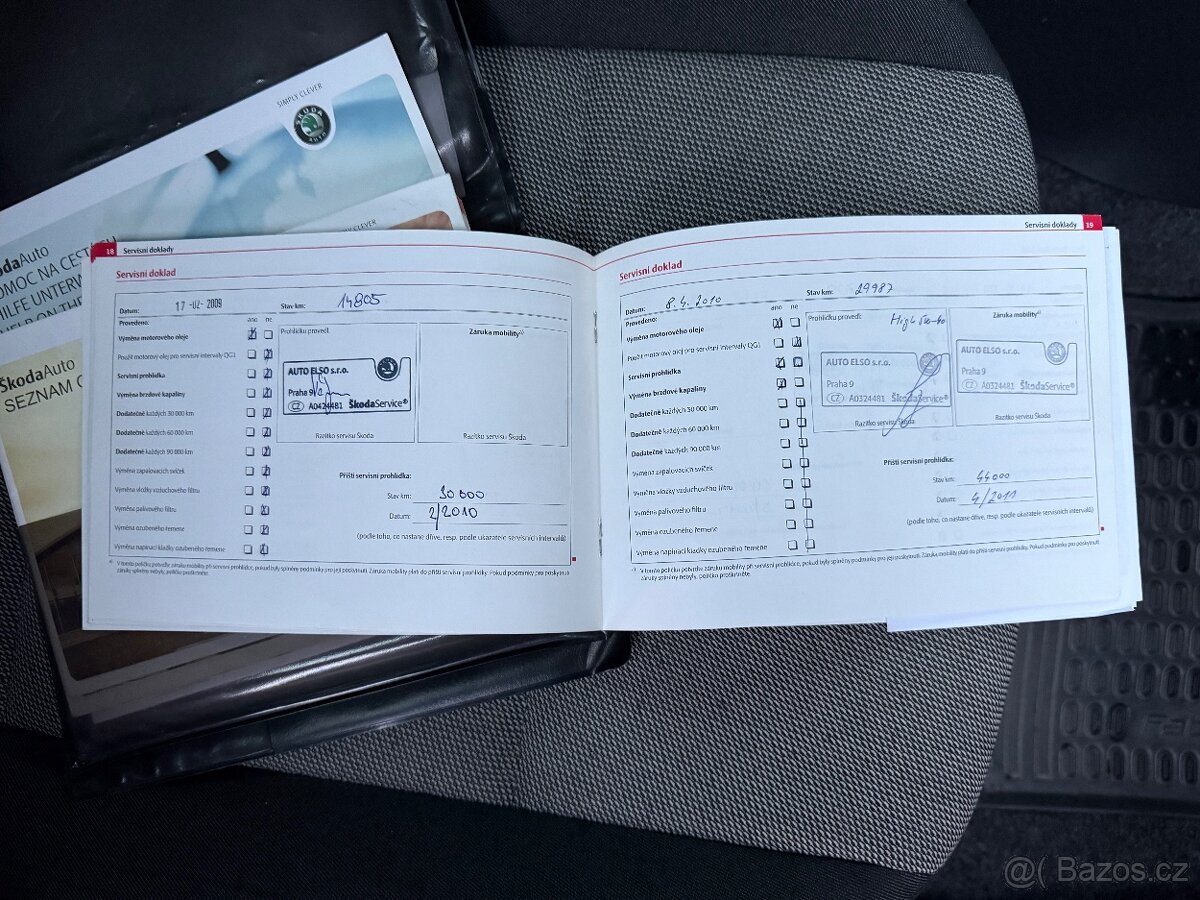 SIMPLY CLEVER
ŠKODA
AUTO
ŠkodaAuto
POMOC NA CESTÁCH
HILFE UNTERW
HELP ON THE
SIMPLY CLEVER
ŠkodaAuto
SEZNAM
18 Servisní doklady
Servisní doklad
Datum: 17 -02- 2009 Stav km: 14805
ano ne
Provedeno:
Výměna motorového oleje
Použit motorový olej pro servisní intervaly QG1
Servisní prohlídka
Výměna brzdové kapaliny
Dodatečné každých 30 000 km
Dodatečné každých 60 000 km
Dodatečné každých 90 000 km
Výměna zapalovacích svíček
Výměna vložky vzduchového filtru
Výměna palivového filtru
Výměna ozubeného řemene
Výměna napínací kladky ozubeného řemene
Prohlídku proved:
AUTO ELSO s.r.o.
Praha 9
CZ A0324481 ŠkodaService®
Razítko servisu Škoda
Záruka mobility*)
Razítko servisu Škoda
Příští servisní prohlídka:
Stav km: 30 000
Datum: 2/2010
(podle toho, co nastane dříve, resp. podle ukazatele servisních intervalů)
*) V tomto políčku potvrďte záruku mobility při servisní prohlídce, pokud byly splněny podmínky pro její poskytnutí. Záruka mobility platí do příští servisní prohlídky. Pokud podmínky pro poskytnutí
záruky splněny nebyly, políčko proškrtněte.
Servisní doklady 19
Servisní doklad
Datum: 8. 4. 2010 Stav km: 29987
ano ne
Provedeno:
Výměna motorového oleje
Použit motorový olej pro servisní intervaly QG1
Servisní prohlídka
Výměna brzdové kapaliny
Dodatečné každých 30 000 km
Dodatečné každých 60 000 km
Dodatečné každých 90 000 km
Výměna zapalovacích svíček
Výměna vložky vzduchového filtru
Výměna palivového filtru
Výměna ozubeného řemene
Výměna napínací kladky ozubeného řemene
Prohlídku proved:
High
AUTO ELSO s.r.o.
Praha 9
CZ A0324481 ŠkodaService®
Razítko servisu Škoda
Záruka mobility*)
AUTO ELSO s.r.o.
Praha 9
CZ A0324481 ŠkodaService®
Razítko servisu Škoda
Příští servisní prohlídka:
Stav km: 44000
Datum: 4/2011
(podle toho, co nastane dříve, resp. podle ukazatele servisních intervalů)
*) V tomto políčku potvrďte záruku mobility při servisní prohlídce, pokud byly splněny podmínky pro její poskytnutí. Záruka mobility platí do příští servisní prohlídky. Pokud podmínky pro poskytnutí
záruky splněny nebyly, políčko proškrtněte.
@( Bazos.cz